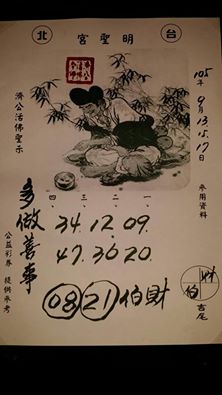 台北 明聖宮
105年9月13.15.17日
參用資料
濟公活佛聖示
一、二、三、四、
09. 12. 34.
20. 36. 47.
多做善事
08 21 伯財
財伯
吉尾
公益彩券 提供參考